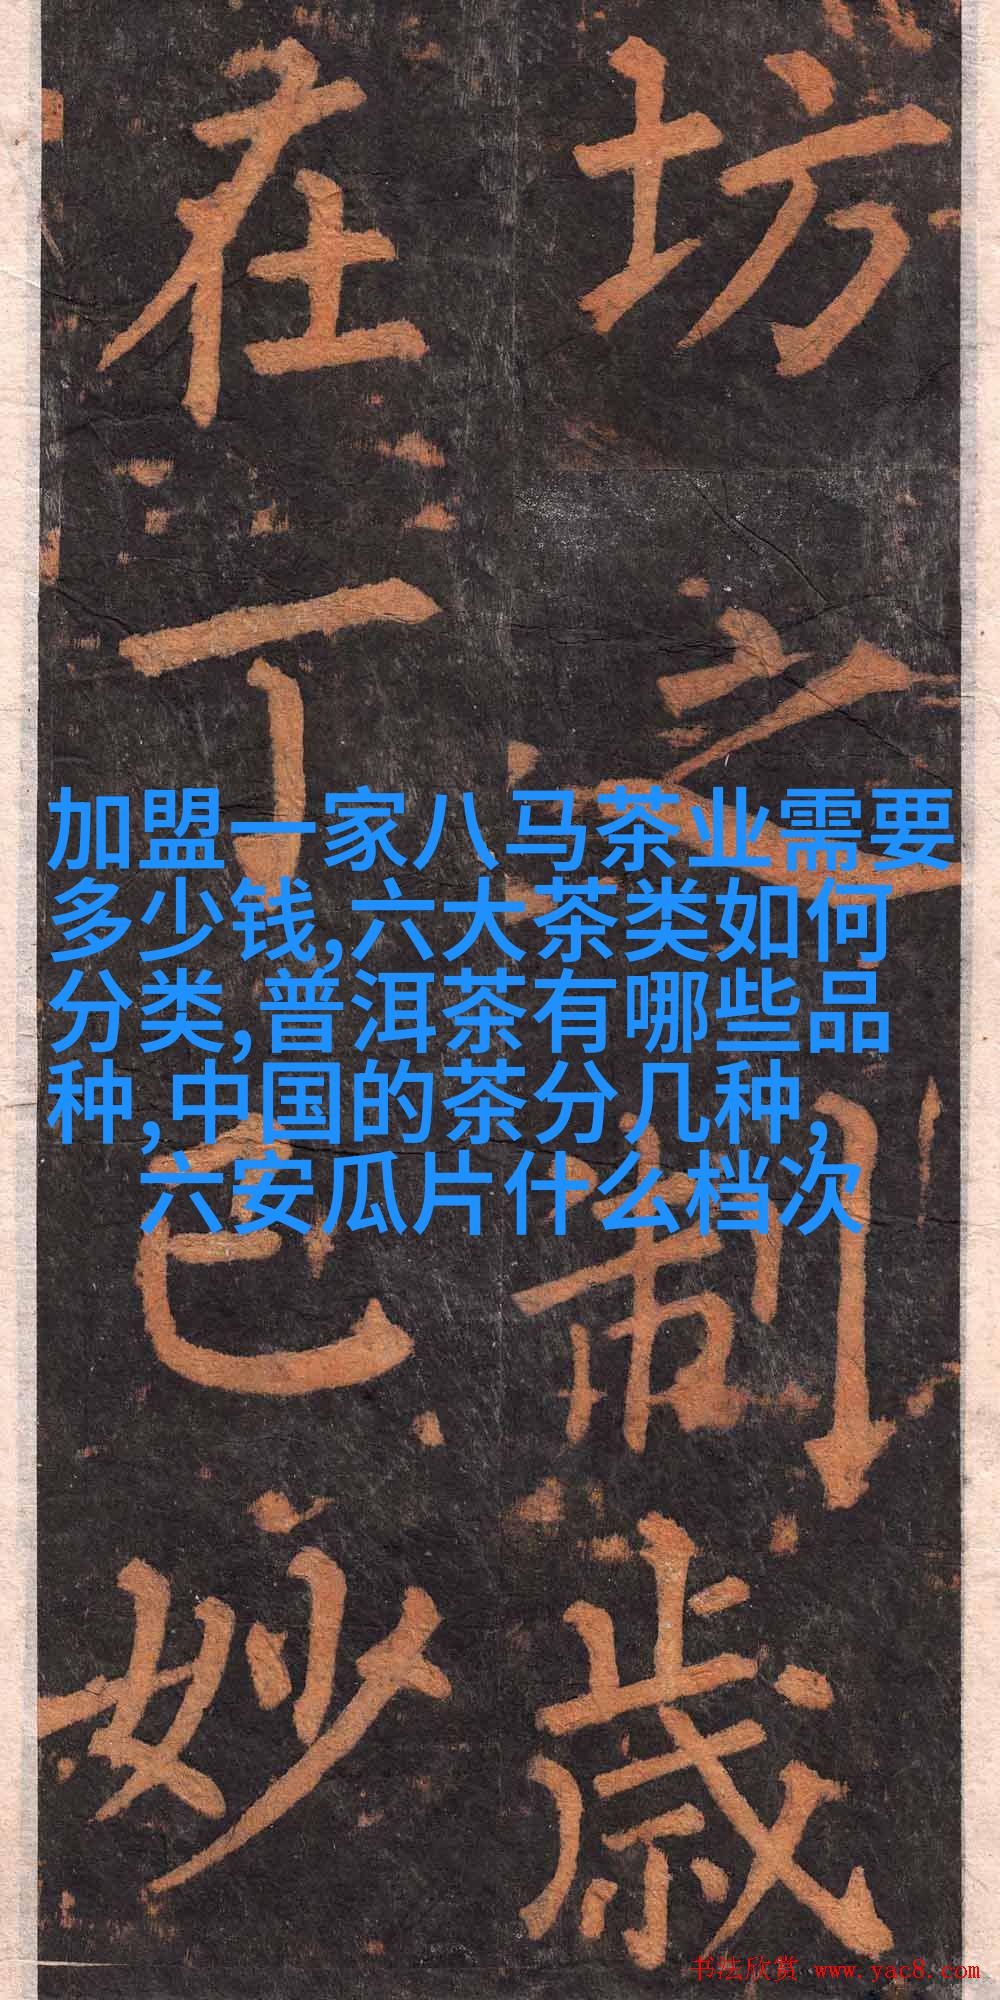 坊之制歲
在丁巳妙
加盟一家八马茶业需要
多少钱,六大茶类如何
分类,普洱茶有哪些品
种,中国的茶分几种,
六安瓜片什么档次
书法欣赏 www.yac8.com